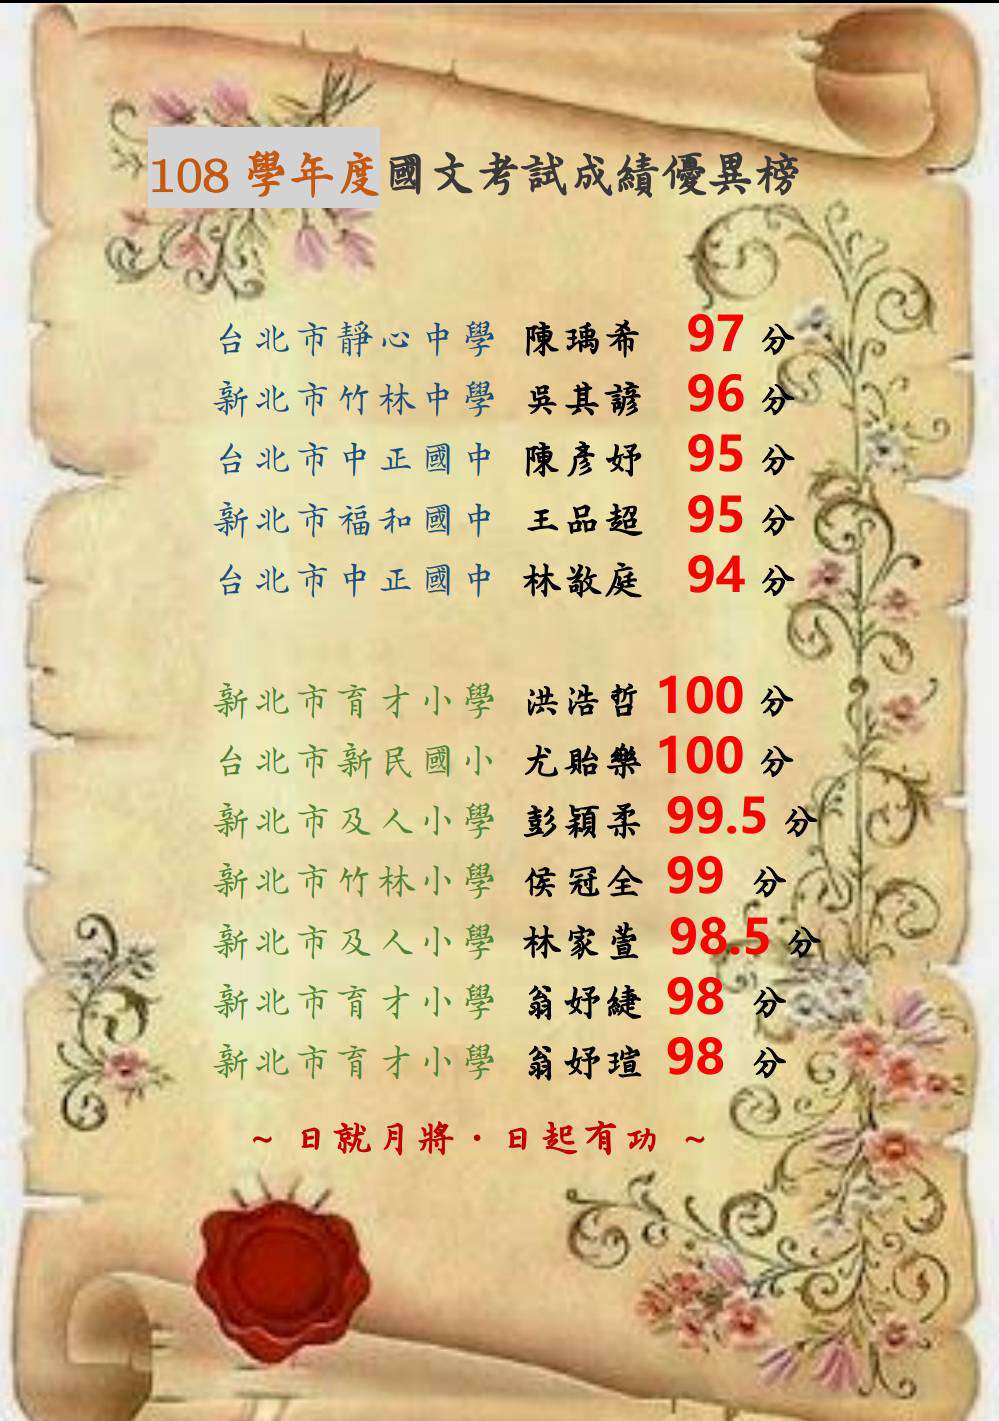 108 學年度國文考試成績優異榜
台北市靜心中學 陳瑀希 97 分
新北市竹林中學 吳其諺 96 分
台北市中正國中 陳彥妤 95 分
新北市福和國中 王品超 95 分
台北市中正國中 林敬庭 94 分
新北市育才小學 洪浩哲 100 分
台北市新民國小 尤貽樂 100 分
新北市及人小學 彭穎柔 99.5 分
新北市竹林小學 侯冠全 99 分
新北市及人小學 林家萱 98.5 分
新北市育才小學 翁妤緁 98 分
新北市育才小學 翁妤瑄 98 分
~ 日就月將·日起有功 ~